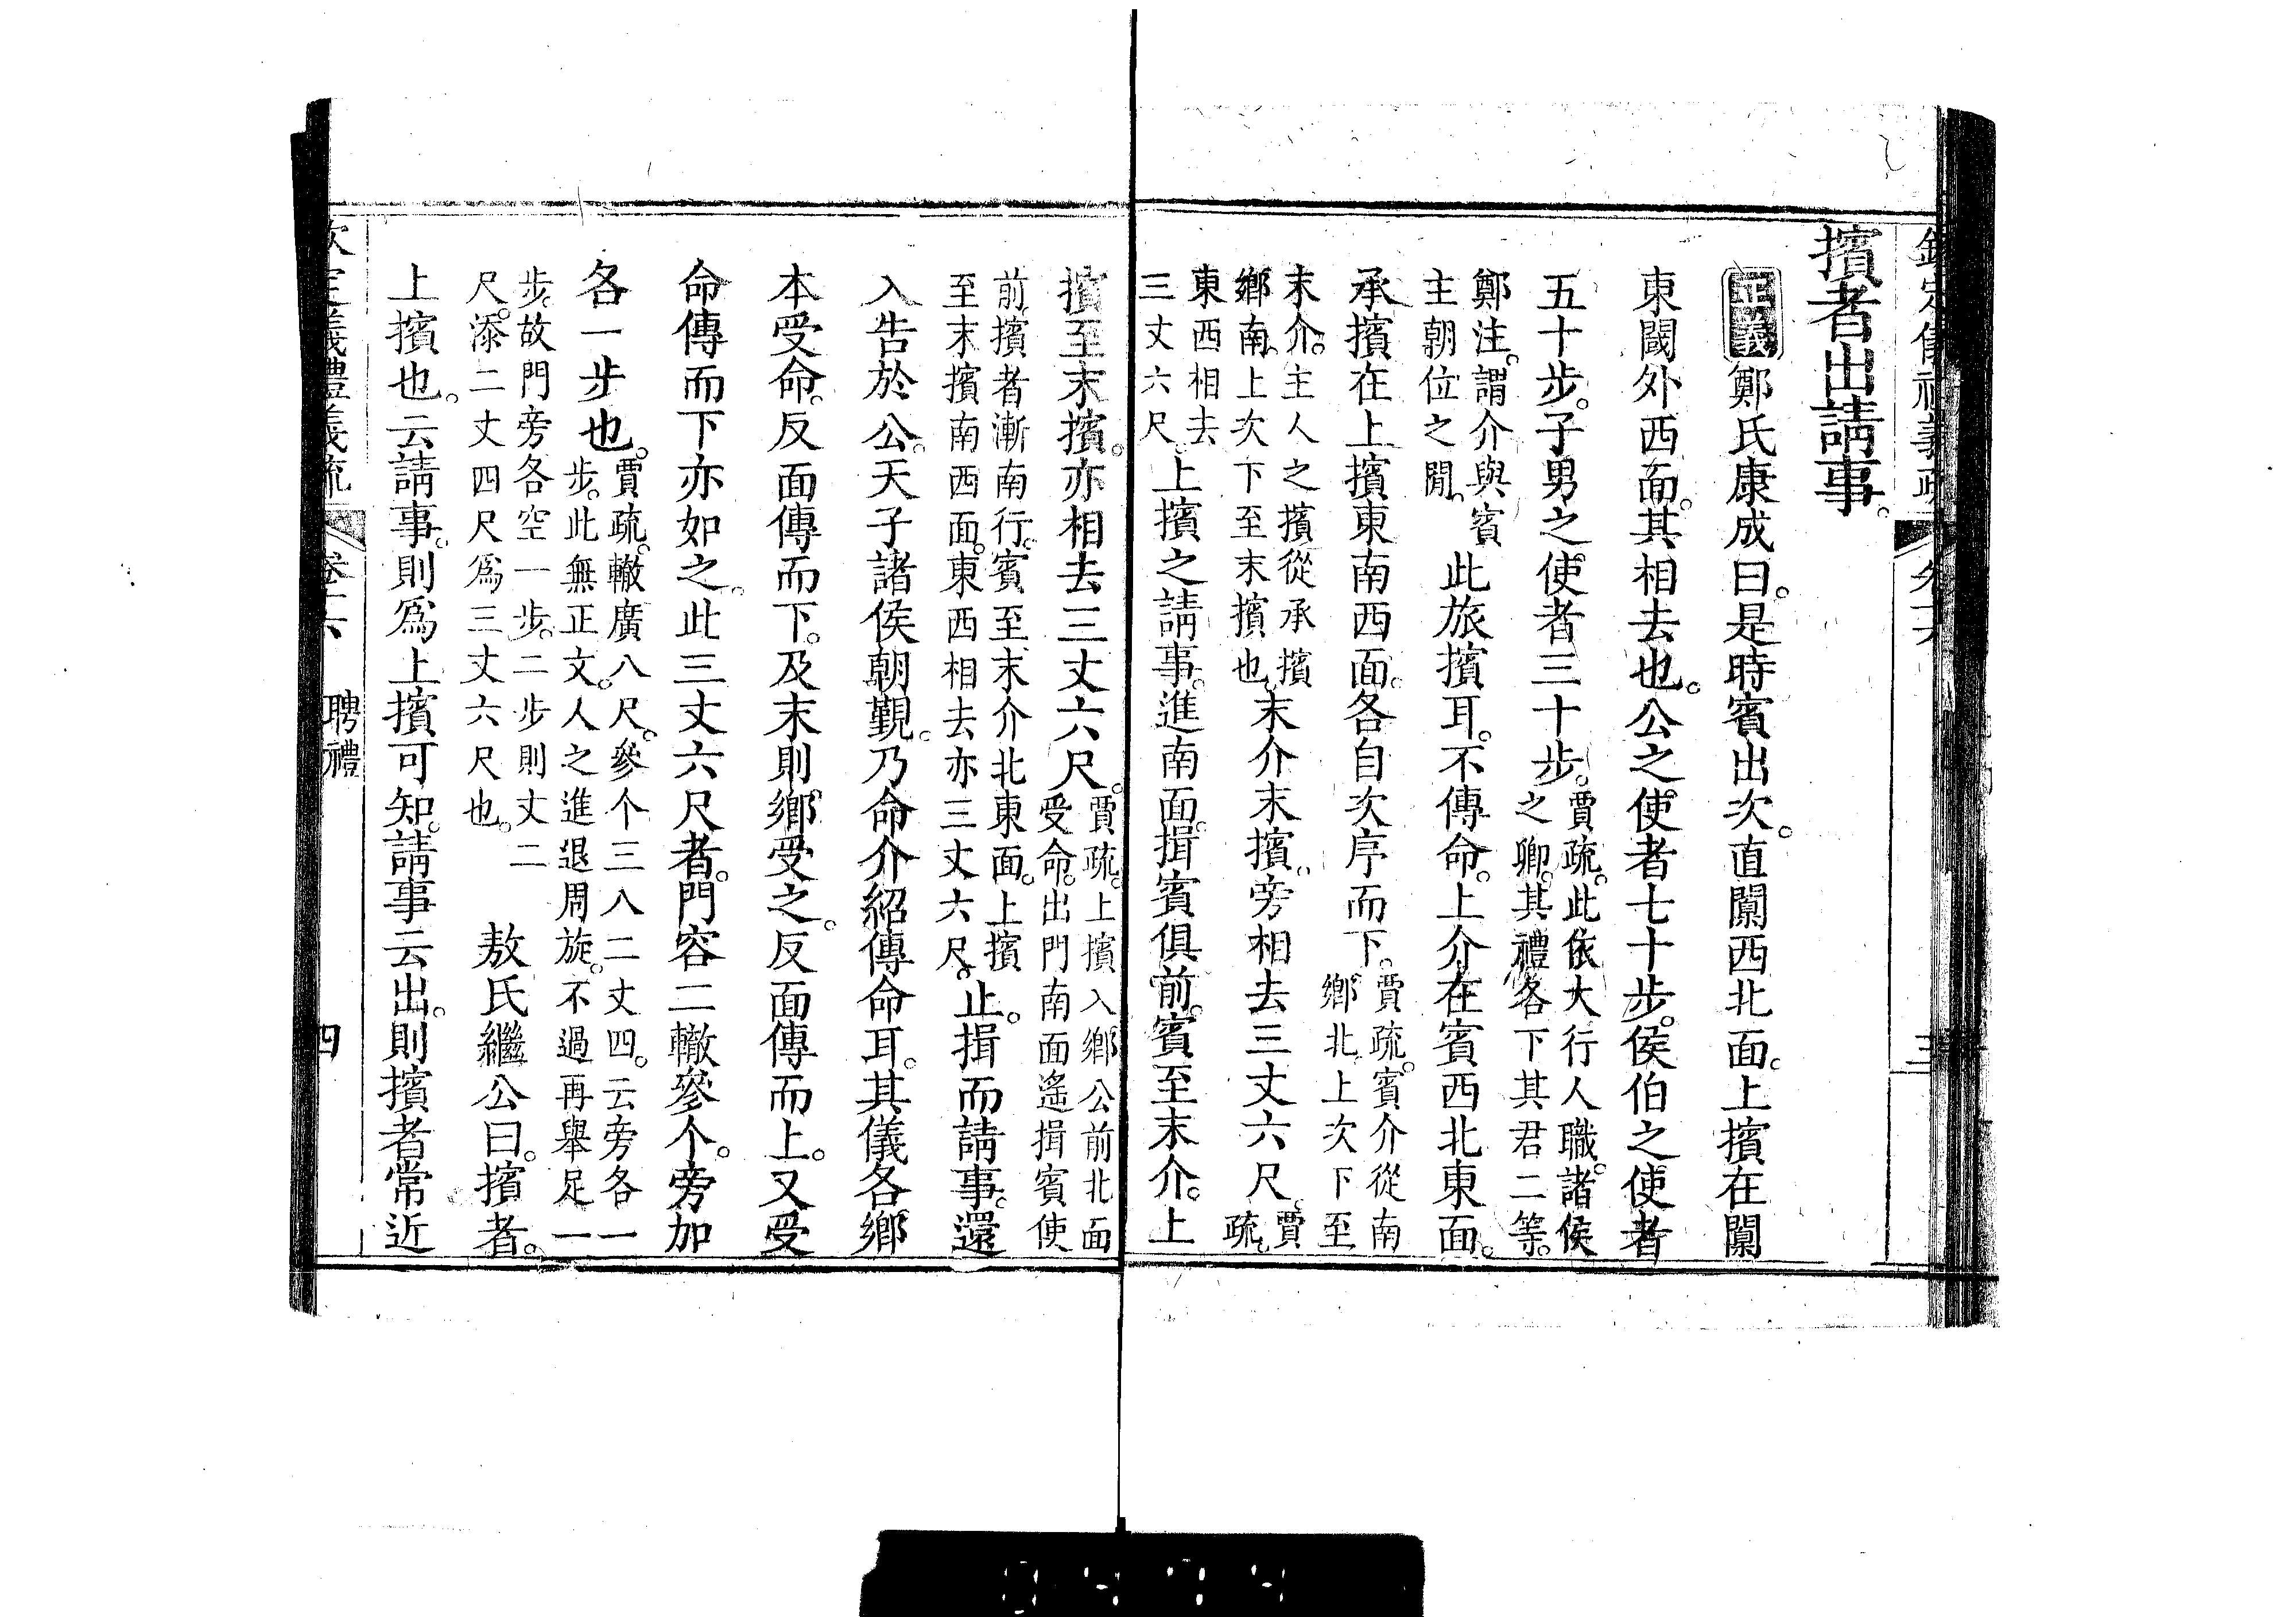 擯者出請事。
正義 鄭氏康成曰。是時賓出次。直闑西北面。上擯在闑
東閾外西面。其相去也。公之使者七十步。侯伯之使者
五十步。子男之使者三十步。賈疏。此依大行人職。諸侯
之卿。其禮各下其君二等。
鄭注。謂介與賓
主朝位之閒。
此旅擯耳。不傳命。上介在賓西北東面。
承擯在上擯東南西面。各自次序而下。賈疏。賓介從南
鄉北。上次下至
末介。主人之擯從承擯
鄉南。上次下至末擯也。
末介末擯。旁相去三丈六尺。賈
疏。
東西相去
三丈六尺。
上擯之請事。進南面。揖賓俱前。賓至末介。上
擯至末擯。亦相去三丈六尺。賈疏。上擯入鄉公前北面
受命。出門南面遙揖賓使
前。擯者漸南行。賓至末介北東面。上擯
至末擯南西面。東西相去亦三丈六尺。
止。揖而請事。還
入告於公。天子諸侯朝覲。乃命介紹傳命耳。其儀各鄉
本受命。反面傳而下。及末則鄉受之。反面傳而上。又受
命傳而下亦如之。此三丈六尺者。門容二轍參个。旁加
各一步也。賈疏。轍廣八尺。參个三八二丈四。云旁各一
步。此無正文。人之進退周旋。不過再舉足一
步。故門旁各空一步。二步則丈二
尺。添二丈四尺爲三丈六尺也。
敖氏繼公曰。擯者。
上擯也。云請事。則爲上擯可知。請事云出。則擯者常近
聘禮
四